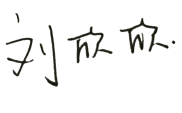 刘欣欣